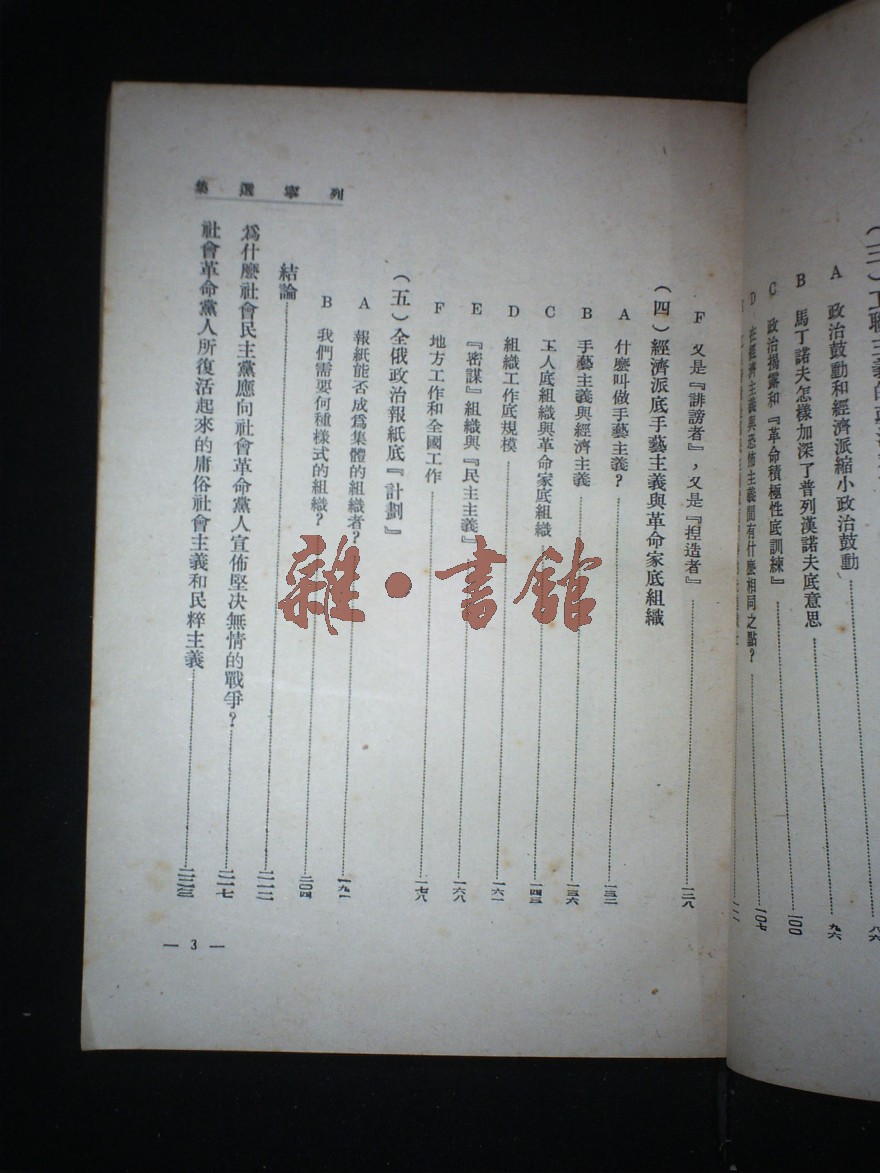 A 政治鼓動和經濟派縮小政治鼓動 九六
B 馬丁諾夫怎樣加深了普列漢諾夫底意思 一〇〇
C 政治揭露和『革命積極性底訓練』 一〇七
D 在經濟主義與恐怖主義間有什麼相同之點?
列寧選集
F 又是『誹謗者』,又是『捏造者』 一二八
(四)經濟派底手藝主義與革命家底組織
A 什麼叫做手藝主義? 一三二
B 手藝主義與經濟主義 一三六
C 工人底組織與革命家底組織 一四三
D 組織工作底規模 一六一
E 『密謀』組織與『民主主義』 一六八
F 地方工作和全國工作 一七八
(五)全俄政治報紙底『計劃』
A 報紙能否成爲集體的組織者? 一九一
B 我們需要何種樣式的組織? 二〇四
結論 二一二
爲什麼社會民主黨應向社會革命黨人宣佈堅决無情的戰爭? 二一七
社會革命黨人所復活起來的庸俗社會主義和民粹主義 二二三
— 3 —
雜·書館